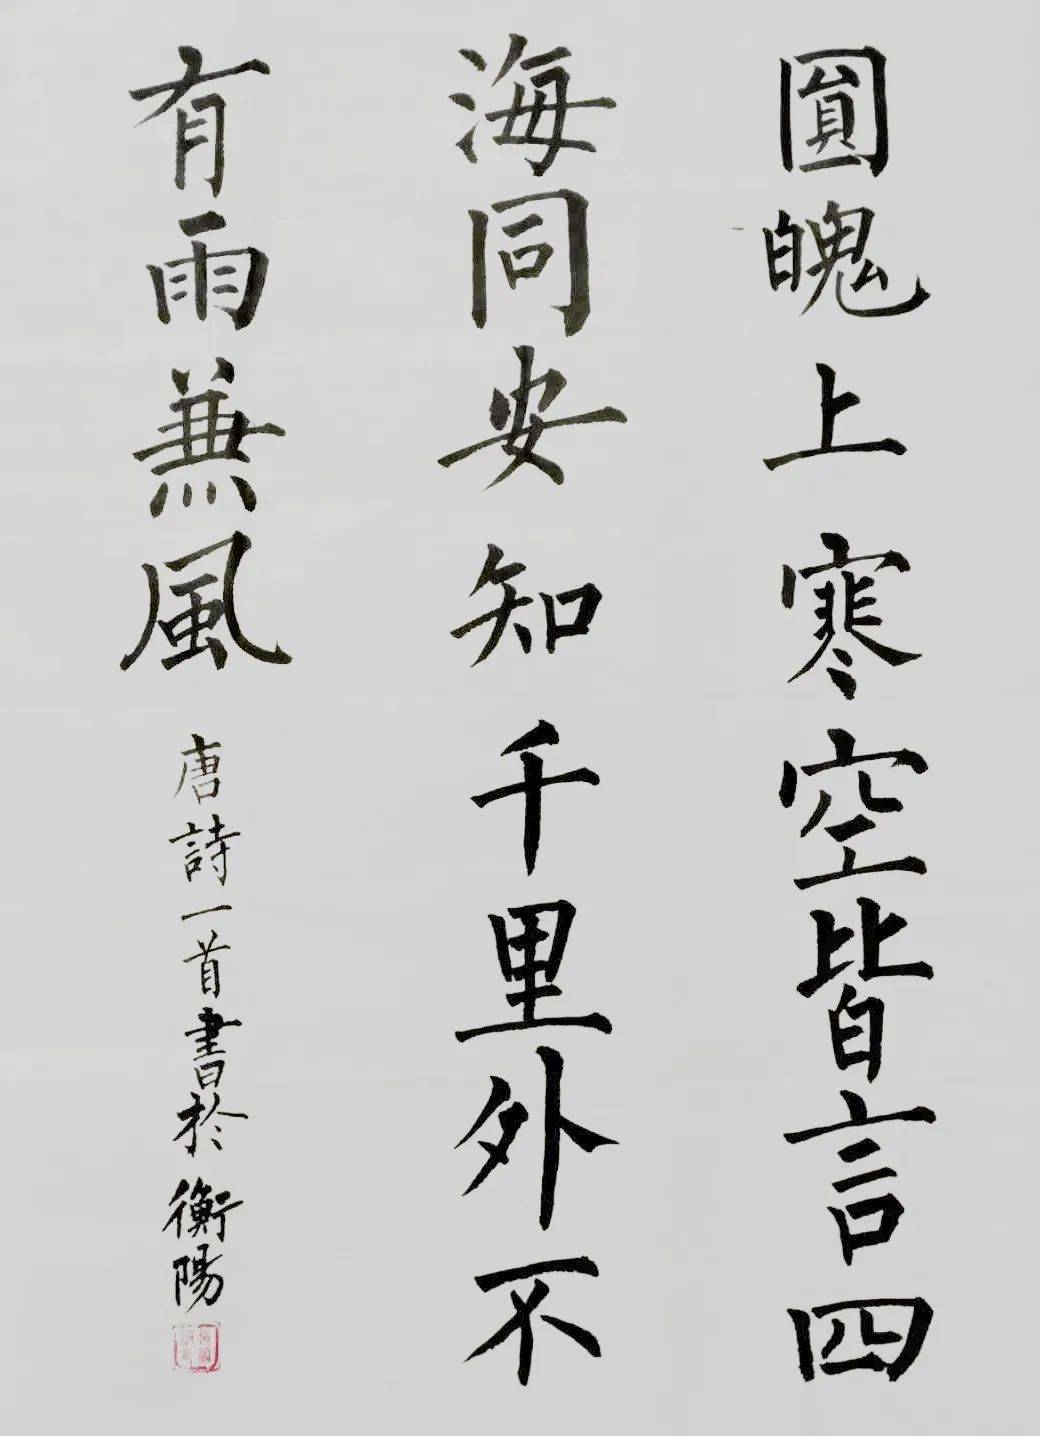 圓魄上寒空皆言四
海同安知千里外不
有雨兼風
唐詩一首書於衡陽